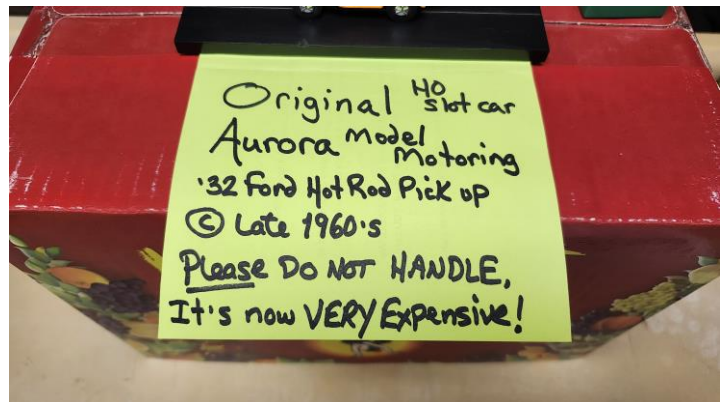 Original HO slot car
Aurora Model Motoring
'32 Ford Hot Rod Pick up
© Late 1960's
Please DO NOT HANDLE,
It's now VERY Expensive!